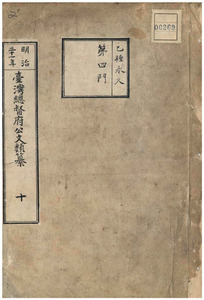 乙種永久
第四門
明治
三十一年
臺灣總督府公文類纂
十